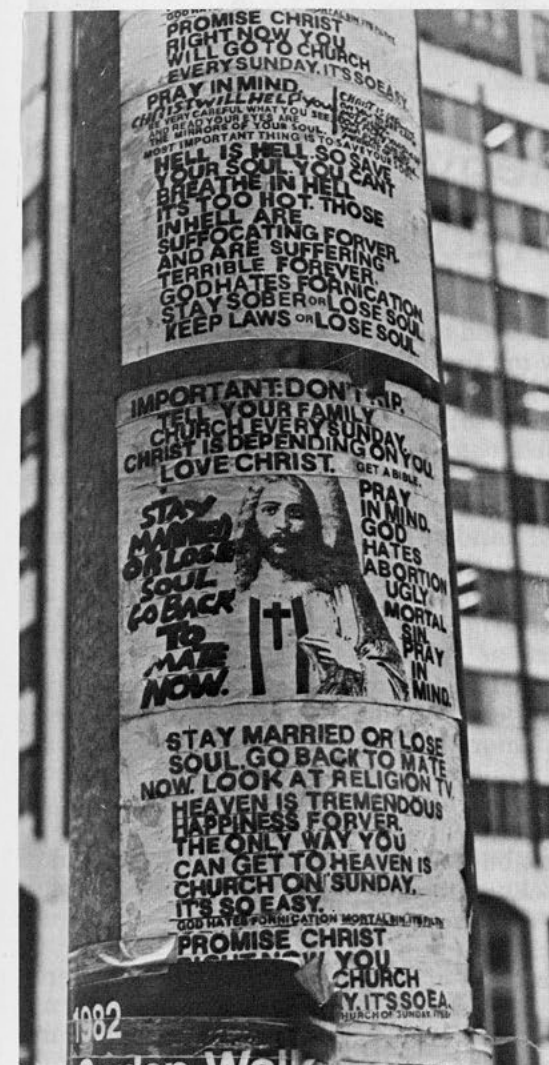 GOD HATES
PROMISE CHRIST
RIGHT NOW YOU
WILL GO TO CHURCH
EVERY SUNDAY. IT'S SO EASY.
PRAY IN MIND.
CHRIST WILL HELP you
BE VERY CAREFUL WHAT YOU SEE
AND READ YOUR EYES ARE
THE MIRRORS OF YOUR SOUL.
MOST IMPORTANT THING IS TO SAVE YOUR
HELL IS HELL. SO SAVE
YOUR SOUL. YOU CANT
BREATHE IN HELL
ITS TOO HOT. THOSE
IN HELL ARE
SUFFOCATING FORVER.
AND ARE SUFFERING
TERRIBLE FOREVER.
GOD HATES FORNICATION
STAY SOBER OR LOSE SOUL
KEEP LAWS OR LOSE SOUL
IMPORTANT: DON'T
TELL YOUR FAMILY
CHURCH EVERY SUNDAY.
CHRIST IS DEPENDING ON YOU.
LOVE CHRIST. GET A BIBLE.
STAY
MARRIED
OR LOSE
SOUL
GO BACK
TO
MATE
NOW.
PRAY
IN MIND.
GOD
HATES
ABORTION
UGLY
MORTAL
SIN.
PRAY
IN
MIND.
STAY MARRIED OR LOSE
SOUL. GO BACK TO MATE
NOW. LOOK AT RELIGION TV.
HEAVEN IS TREMENDOUS
HAPPINESS FORVER.
THE ONLY WAY YOU
CAN GET TO HEAVEN IS
CHURCH ON SUNDAY.
IT'S SO EASY.
GOD HATES FORNICATION MORTAL SIN. ITS FILTH
PROMISE CHRIST
YOU
CHURCH
Y. IT'S SO EA.
CHURCH OF SUNDAY
1982